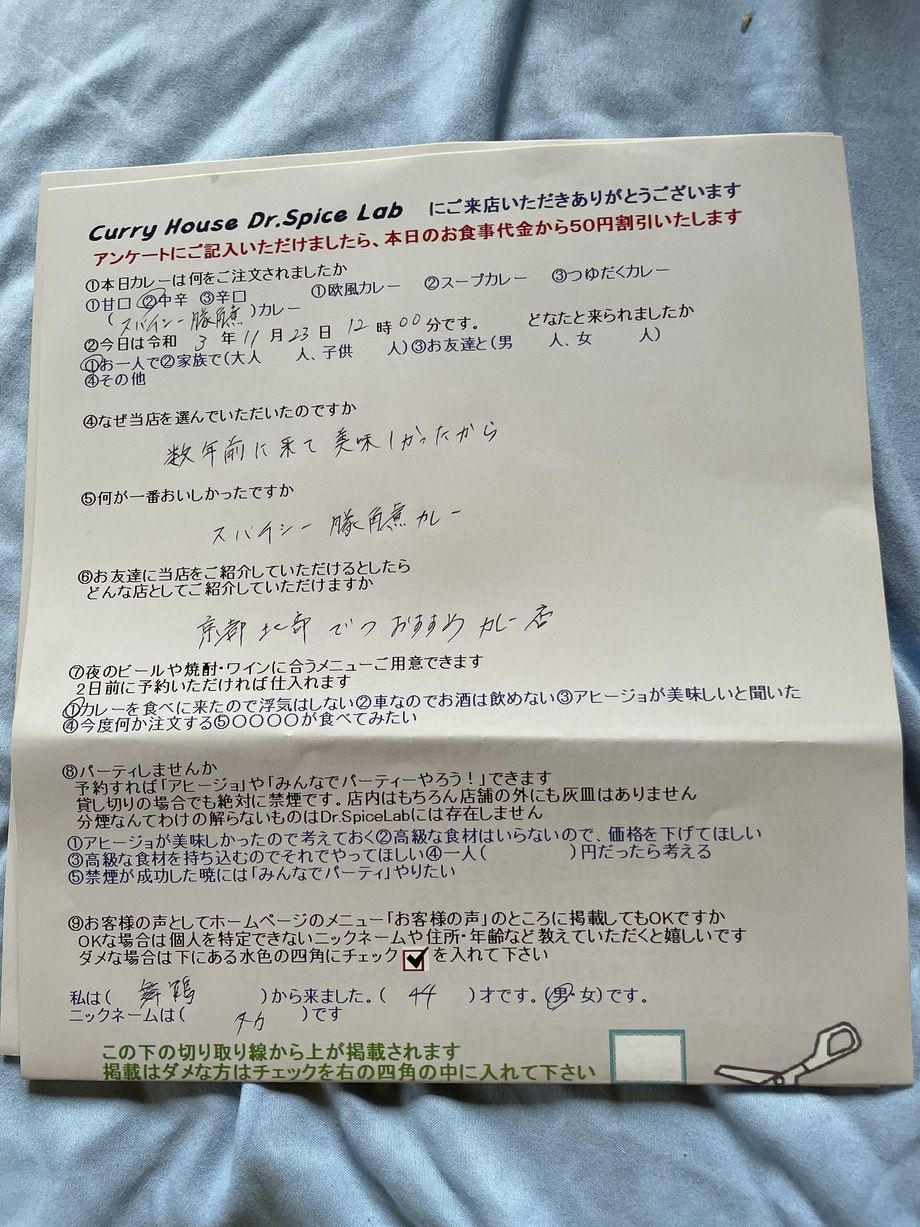 Curry House Dr.Spice Lab にご来店いただきありがとうございます
アンケートにご記入いただけましたら、本日のお食事代金から50円割引いたします
①本日カレーは何をご注文されましたか
①甘口 ②中辛 ③辛口 ①欧風カレー ②スープカレー ③つゆだくカレー
(スパイシー豚角煮)カレー
②今日は令和 3 年 11 月 23 日 12 時 00 分です。 どなたと来られましたか
①お一人で②家族で(大人 人、子供 人)③お友達と(男 人、女 人)
④その他
④なぜ当店を選んでいただいたのですか
数年前に来て美味しかったから
⑤何が一番おいしかったですか
スパイシー豚角煮カレー
⑥お友達に当店をご紹介していただけるとしたら
どんな店としてご紹介していただけますか
京都北部でつおすすめカレー店
⑦夜のビールや焼酎・ワインに合うメニューご用意できます
2日前に予約いただければ仕入れます
①カレーを食べに来たので浮気はしない②車なのでお酒は飲めない③アヒージョが美味しいと聞いた
④今度何か注文する⑤〇〇〇〇が食べてみたい
⑧パーティしませんか
予約すれば「アヒージョ」や「みんなでパーティーやろう!」できます
貸し切りの場合でも絶対に禁煙です。店内はもちろん店舗の外にも灰皿はありません
分煙なんてわけの解らないものはDr.SpiceLabには存在しません
①アヒージョが美味しかったので考えておく②高級な食材はいらないので、価格を下げてほしい
③高級な食材を持ち込むのでそれでやってほしい④一人( )円だったら考える
⑤禁煙が成功した暁には「みんなでパーティ」やりたい
⑨お客様の声としてホームページのメニュー「お客様の声」のところに掲載してもOKですか
OKな場合は個人を特定できないニックネームや住所・年齢など教えていただくと嬉しいです
ダメな場合は下にある水色の四角にチェック を入れて下さい
私は( 舞鶴 )から来ました。( 44 )才です。(男・女)です。
ニックネームは( タカ )です
この下の切り取り線から上が掲載されます
掲載はダメな方はチェックを右の四角の中に入れて下さい